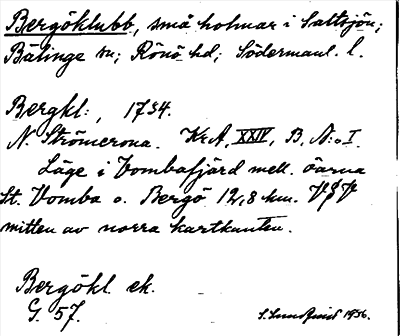 Bergöklubb, små holmar i Saltsjön;
Bälinge sn; Rönö hd; Södermanl. l.
Bergkl:, 1734.
N. Strömcrona. Kr.A. XXIV, B, N:o I.
Läge i Vombafjärd mell. öarna
St. Vomba o. Bergö 12,8 km. VSV
mitten av norra kartkanten.
Bergökl. ek.
G. 57.
S. Lundquist 1936.